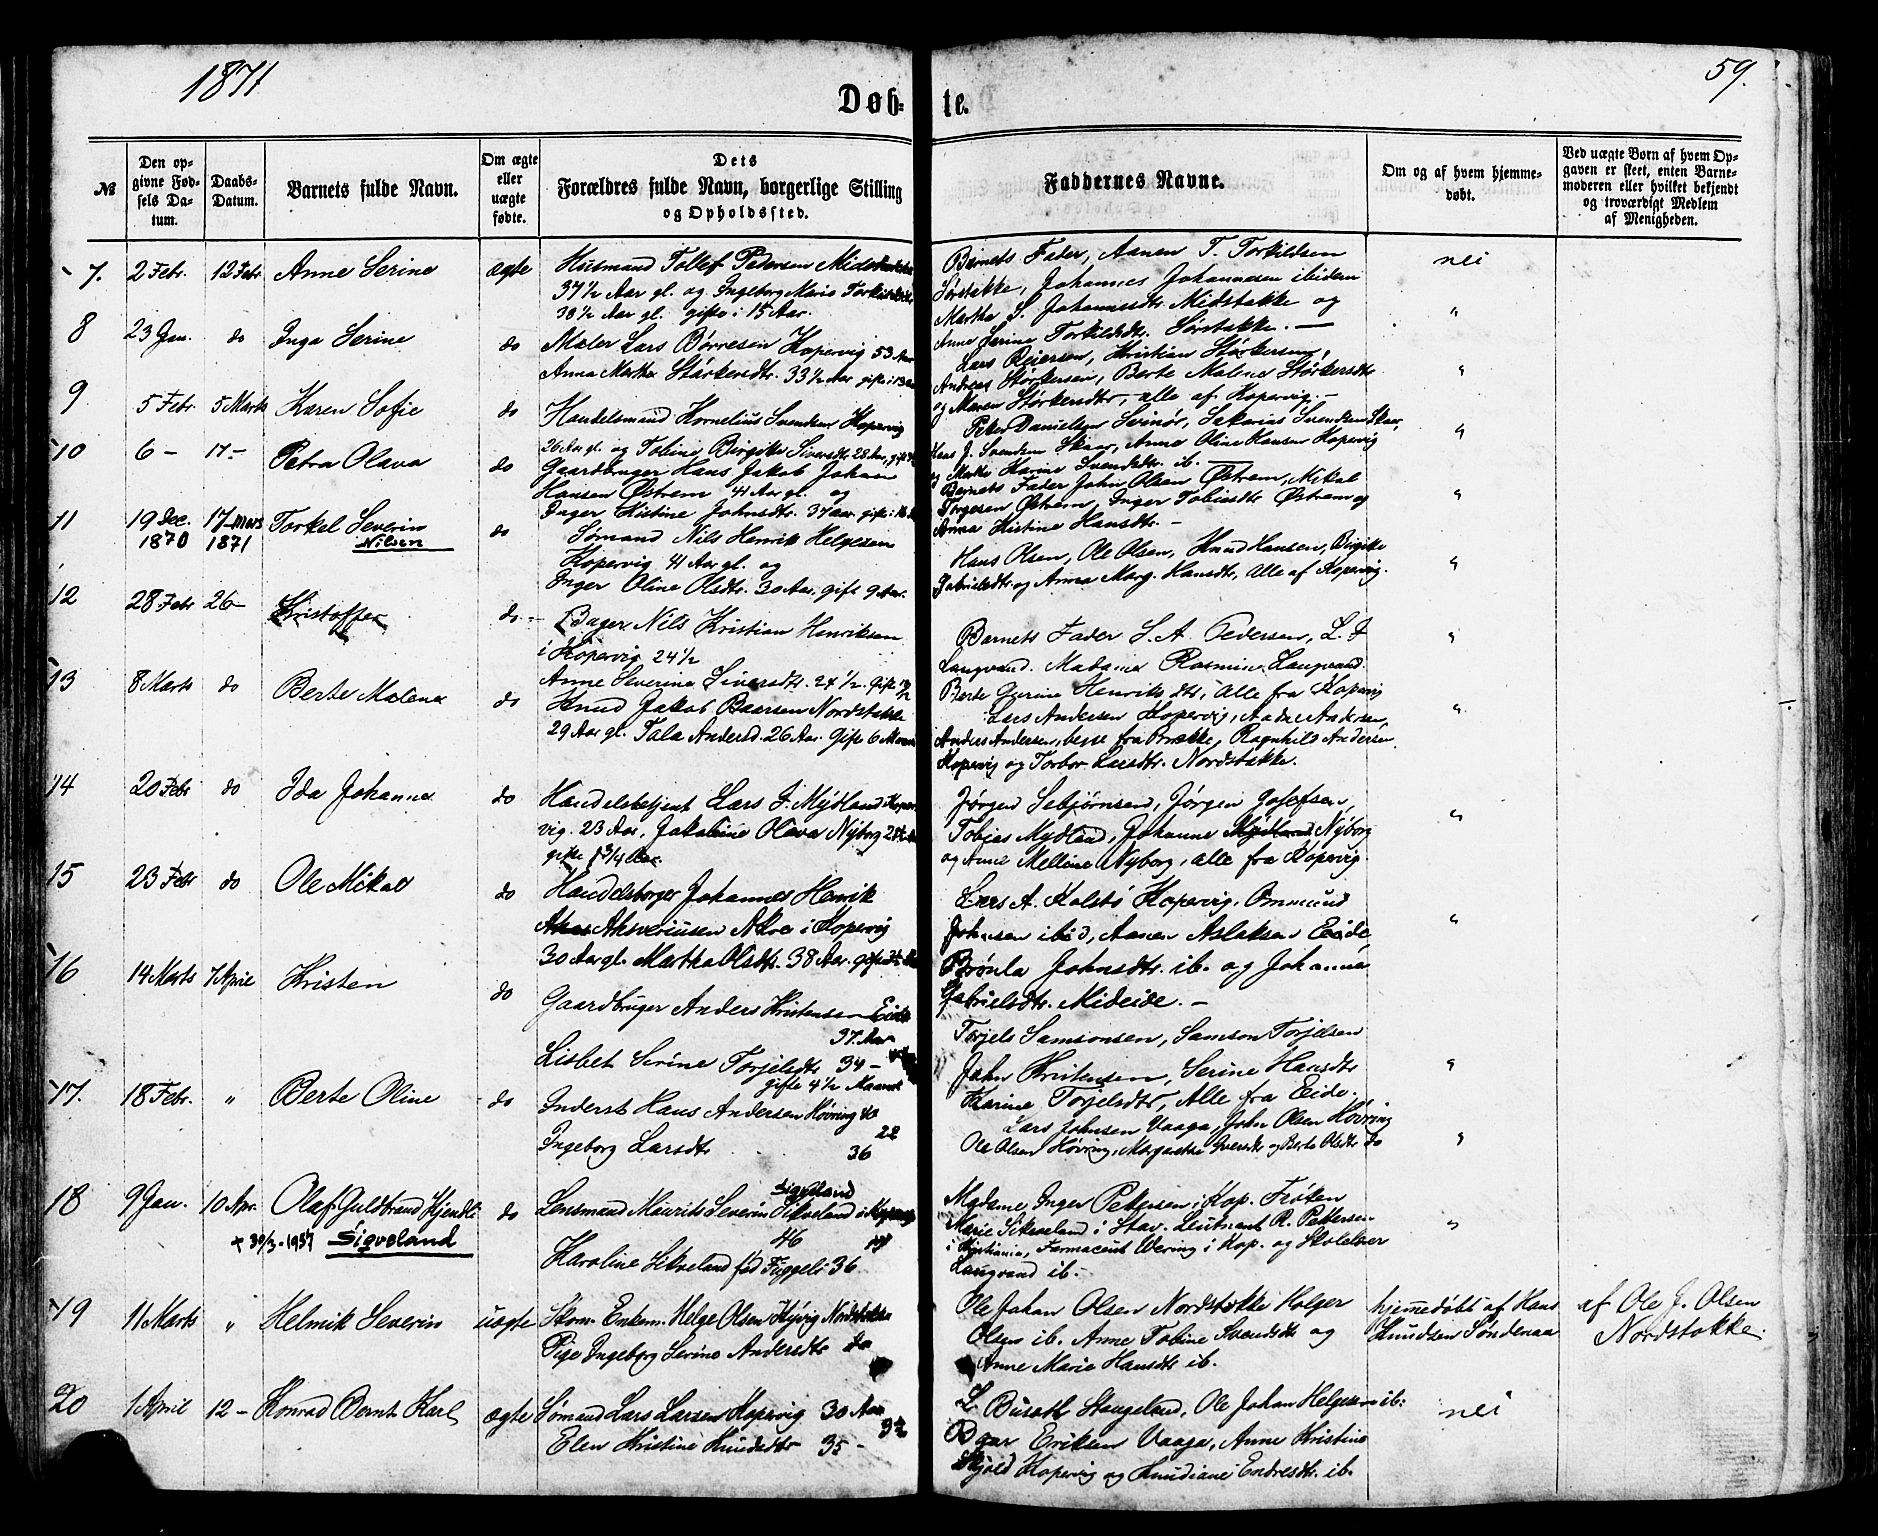 1871
59.
Døb-te.
№
Den opgivne Fødsels Datum.
Daabs-Datum.
Barnets fulde Navn.
Om ægte eller uægte fødte.
Dets Forældres fulde Navn, borgerlige Stilling og Opholdssted.
Faddernes Navne.
Om og af hvem hjemmedøbt.
Ved uægte Børn af hvem Opgaven er skeet, enten Barnemoderen eller hvilket bekjendt og troværdigt Medlem af Menigheden.
7. 2 Febr. 12 Febr. Anne Serine ægte
Husmand Tollef Pedersen
37½ Aar gl. og Ingeborg Marie
38½ Aar gl. gifte i 15 Aar.
Barnets Fader, Aanen T. Torkildsen
Sørstakke, Johannes Johannesen ibidem
Martha S. Johannesdtr. Midstakke og
Anne Serine Torkildsdtr. Sørstakke. —
nei
8 23 Jan. do Inga Serine do
Maler Lars Børresen Kopervig 53 Aar
Anna Martha Størkersdtr. 33½ Aar gift i 13 Aar
Lars Reiersen, Kristian Størkersen,
Andreas Størkersen, Berte Malene Størkersdtr
og Maren Størkersdtr, alle af Kopervig. —
"
9 5 Febr. 5 Marts Karen Sofie do
Handelsmand Kornelius Svendsen Kopervig
26 Aar gl. og Tobine Birgitte Siversdt. 28 Aar,
Peter Danielsen Svinør, Sakarias Svendsen Skaar,
Hans J. Svendsen Skaar, Anne Oline Hansen Kopervig
og Marthe Karine Svendsdtr. ib. —
"
10 6 — 17 — Petra Olava do
Gaardbruger Hans Jakob Johan
Hansen Østrem 41 Aar gl. og
Inger Kistine Johnsdtr. 37 aar. gift i
Barnets Fader John Olsen Østrem, Mikal
Torgesen Østrem, Inger Tobiasdtr Østrem og
Anna Kistine Hansdtr. —
"
11 19 Dec. 1870 17 mars 1871 Torkel Severin
Nilsen
do
Sømand Nils Henrik Helgesen
Kopervig 41 Aar gl. og
Inger Oline Olsdtr. 30 Aar, gift 9 Aar.
Hans Olsen, Ole Olsen, Knud Hansen, Birgitte
Gabrielsdtr og Anna Marg. Hansdtr, Alle af Kopervig.
"
12 28 Febr 26 — Kristoffer do
Bager Nils Kristian Henriksen
i Kopervig 24½
Anne Severine Siversdtr. 24½. Gift
Barnets Fader S. A. Pedersen, L. J
Langvand. Madame Rasmine Langvand.
Berte Gurine Henriksdtr, alle fra Kopervig
"
13 8 Marts do Berte Malena do
Knud Jakob Baarsen Nordstokke
29 Aar gl. Tala Andersd. 26 Aar. Gift 6 Maan
Lars Andersen Kopervig, Aadne Andersen,
Anders Andersen, begge fra Brække, Ragnhild Andersen
Kopervig og Torbor Larsdtr. Nordstokke.
"
14 20 Febr do Ida Johanne do
Handelsbetjent Lars J. Mydland Koper-
vig. 23 Aar, Jakobine Olava Nyborg
gifte ¾ Aar.
Jørgen Sebjørnsen, Jørgen Josefsen,
Tobias Mydland, Johanne Mydland Nyborg
og Anne Mellene Nyborg, alle fra Kopervig.
"
15 23 Febr do Ole Mikal do
Handelsborger Johannes Henrik
Aksveriusen Akre i Kopervig
30 Aar gl. Martha Olsdtr. 38 Aar.
Lars A. Kolstø Kopervig, Ommund
Johnsen ibid, Aanen Aslaksen Eide,
Brønla Johnsdtr. ib. og Johanna
Gabrielsdtr. Mideide. —
"
16 14 Marts 7 April Kristen do
Gaardbruger Anders Kristensen Eide
37 Aar
Lisbet Serine Torjelsdtr 34 —
gifte 4½ Maaned
Torjels Samsonsen, Samson Torjelsen
John Kristensen, Serine Hansdtr
Karine Torjelsdtr, Alle fra Eide.
"
17. 18 Febr. " Berte Oline do
Inderst Hans Andersen Høvring
22
Ingeborg Larsdtr 36
Lars Johnsen Vaaga, John Olsen Høvring
Ole Olsen Høvring, Margrethe Iversdtr og Berte Olsdtr do
"
18 9 Jan. 10 Apr. Olaf Guldbrand Kjendli
+ 30/3-1957 Sigveland
do
Sigveland
Lensmand Mourits Severin Sikveland i Kopervig
46
Karoline Sikveland fød 36
Madame Inger Pettersen i Kop. Frøken
Marie Sikveland i Stav. Leutnant R. Pettersen
i Kristiania, Farmaceut Wering i Kop. og Skolelærer
Langvand ib. —
"
19 11 Marts " Helmik Severin uægte
Skom. Enkem. Helge Olsen Nordstokke
Pige Ingeborg Serine Andersdtr do
Ole Johan Olsen Nordstokke Holger
Olsen ib. Anne Tobine Svendsdtr og
Anne Marie Hansdtr ib.
hjemmedøbt af Hans
Knudsen Søndenaa
af Ole J. Olsen
Nordstokke.
20 1 April 12 — Konrad Bernt Karl ægte
Sømand Lars Larsen Kopervig 30 Aar
Elen Kristine Knudsdtr 35 —
L. Buseth Stangeland, Ole Johan Helgesen ib:
Eriksen Vaaga, Anne Kristine
Skjold Kopervig og Knudiane Endresdtr. ib.
nei